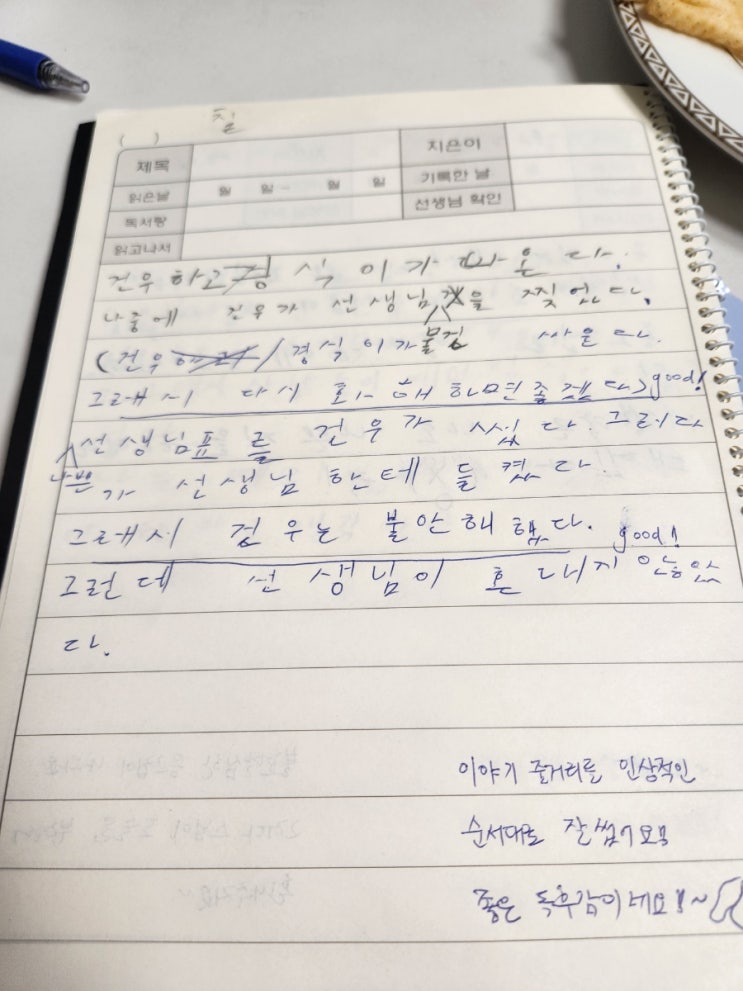 칠
( )
제목 지은이
읽은날 월 일 ~ 월 일 기록한 날
독서량 선생님 확인
읽고나서
건우하고 경식이가 싸운다.
나중에 건우가 선생님 것을 찢었다.
물건
(건우하고/경식이가 싸운다.
그래서 다시 화해하면 좋겠다> good!
선생님표를 건우가 썼다. 그러다
나쁜
가 선생님한테 들켰다.
그래서 건우는 불안해 했다. good!
그런데 선생님이 혼내지 안았
다.
이야기 줄거리를 인상적인
순서대로 잘 썼어요
좋은 독후감이네요!!~